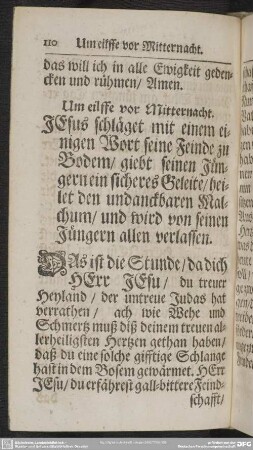 110 Um eilffe vor Mitternacht.
das will ich in alle Ewigkeit geden-
cken und rühmen / Amen.
Um eilffe vor Mitternacht.
JEsus schläget mit einem ei-
nigen Wort seine Feinde zu
Bodem / giebt seinen Jün-
gern ein sicheres Geleite / hei-
let den undanckbaren Mal-
chum / und wird von seinen
Jüngern allen verlassen.
WAs ist die Stunde / da dich
HErr JEsu / du treuer
Heyland / der untreue Judas hat
verrathen / ach wie Wehe und
Schmertz muß diß deinem treuen al-
lerheiligsten Hertzen gethan haben /
daß du eine solche gifftige Schlange
hast in dem Bosem gewärmet. HErr
JEsu / du erfährest gall-bittere Feind-
schafft /